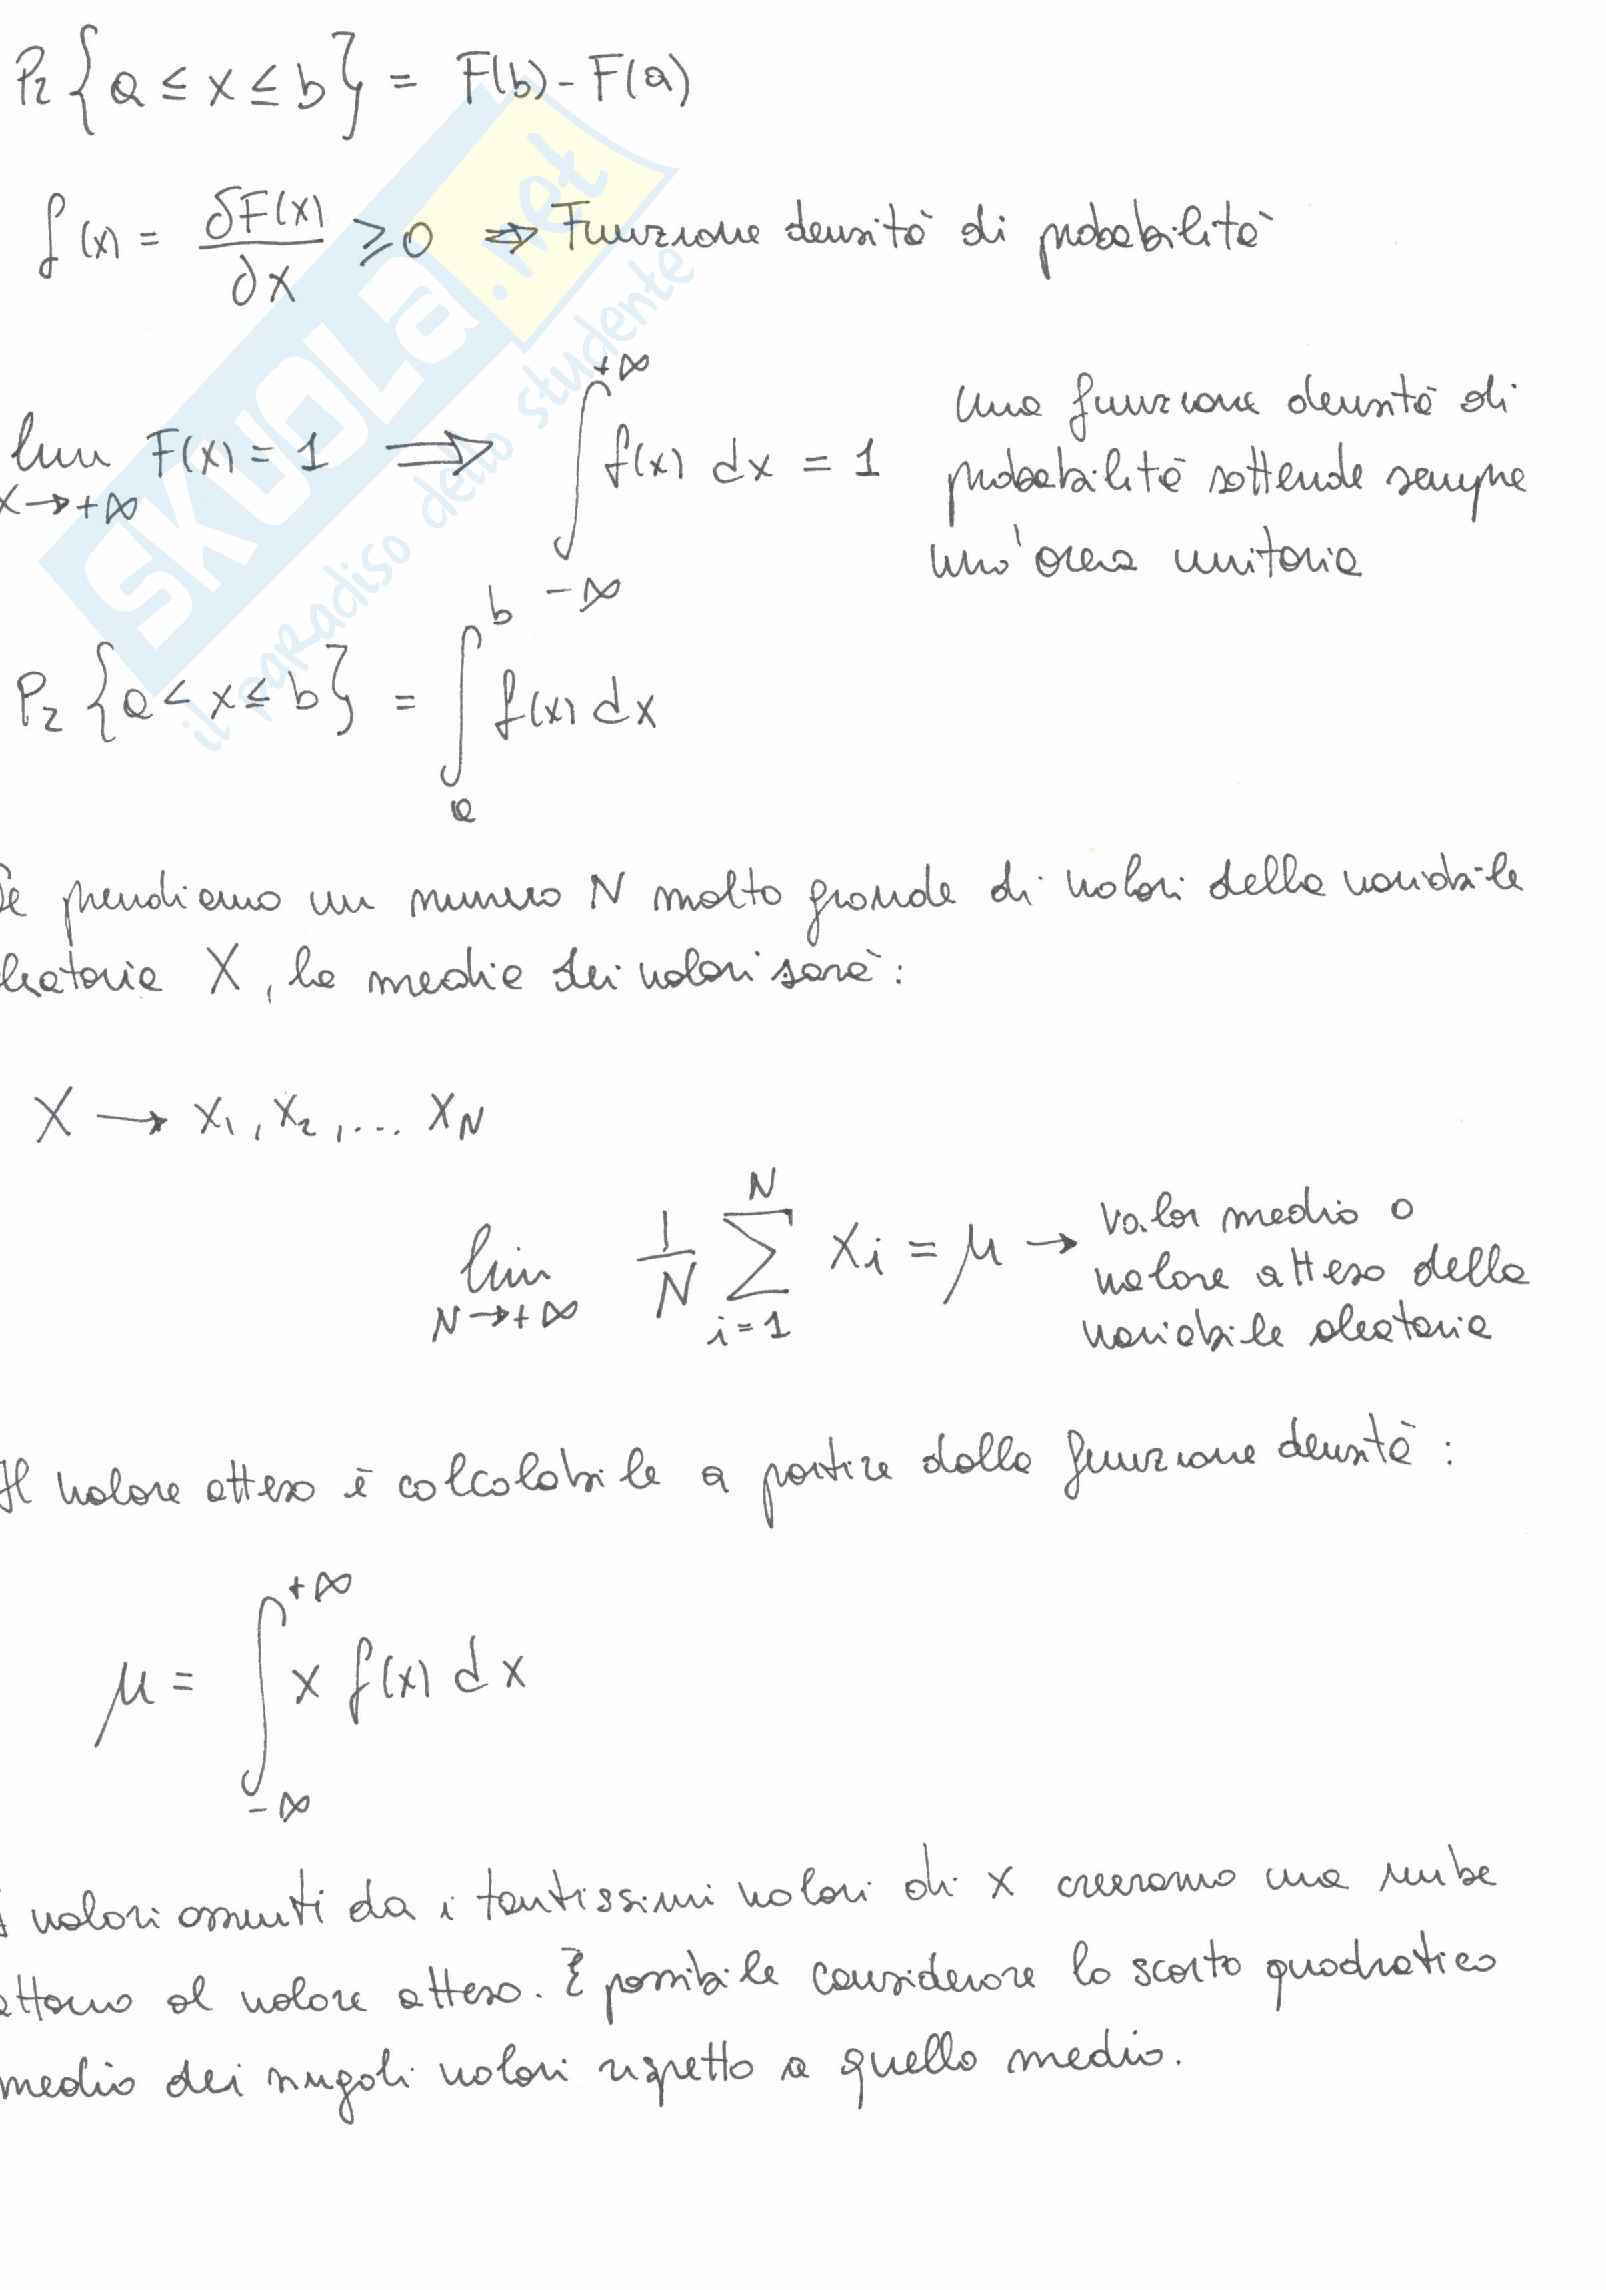 Pr {a ≤ x ≤ b} = F(b) - F(a)
f(x) = δF(x)/∂x ≥ 0 ⇒ Funzione densità di probabilità
lim x→+∞ F(x) = 1 ⇒ ∫_{-∞}^{+∞} f(x) dx = 1
una funzione densità di
probabilità sottende sempre
un'area unitaria
Pr {a < x ≤ b} = ∫_a^b f(x) dx
Se prendiamo un numero N molto grande di valori della variabile
aleatoria X, la media dei valori sarà:
X → x₁, x₂, ... x_N
lim N→+∞ 1/N ∑_{i=1}^{N} xi = μ →
valor medio o
valore atteso della
variabile aleatoria
Il valore atteso è calcolabile a partire dalla funzione densità:
μ = ∫_{-∞}^{+∞} x f(x) dx
I valori assunti da i tantissimi valori di x creeranno una nube
attorno al valore atteso. È possibile considerare lo scarto quadratico
medio dei singoli valori rispetto a quello medio.
SKUOLA.net
il paradiso dello studente